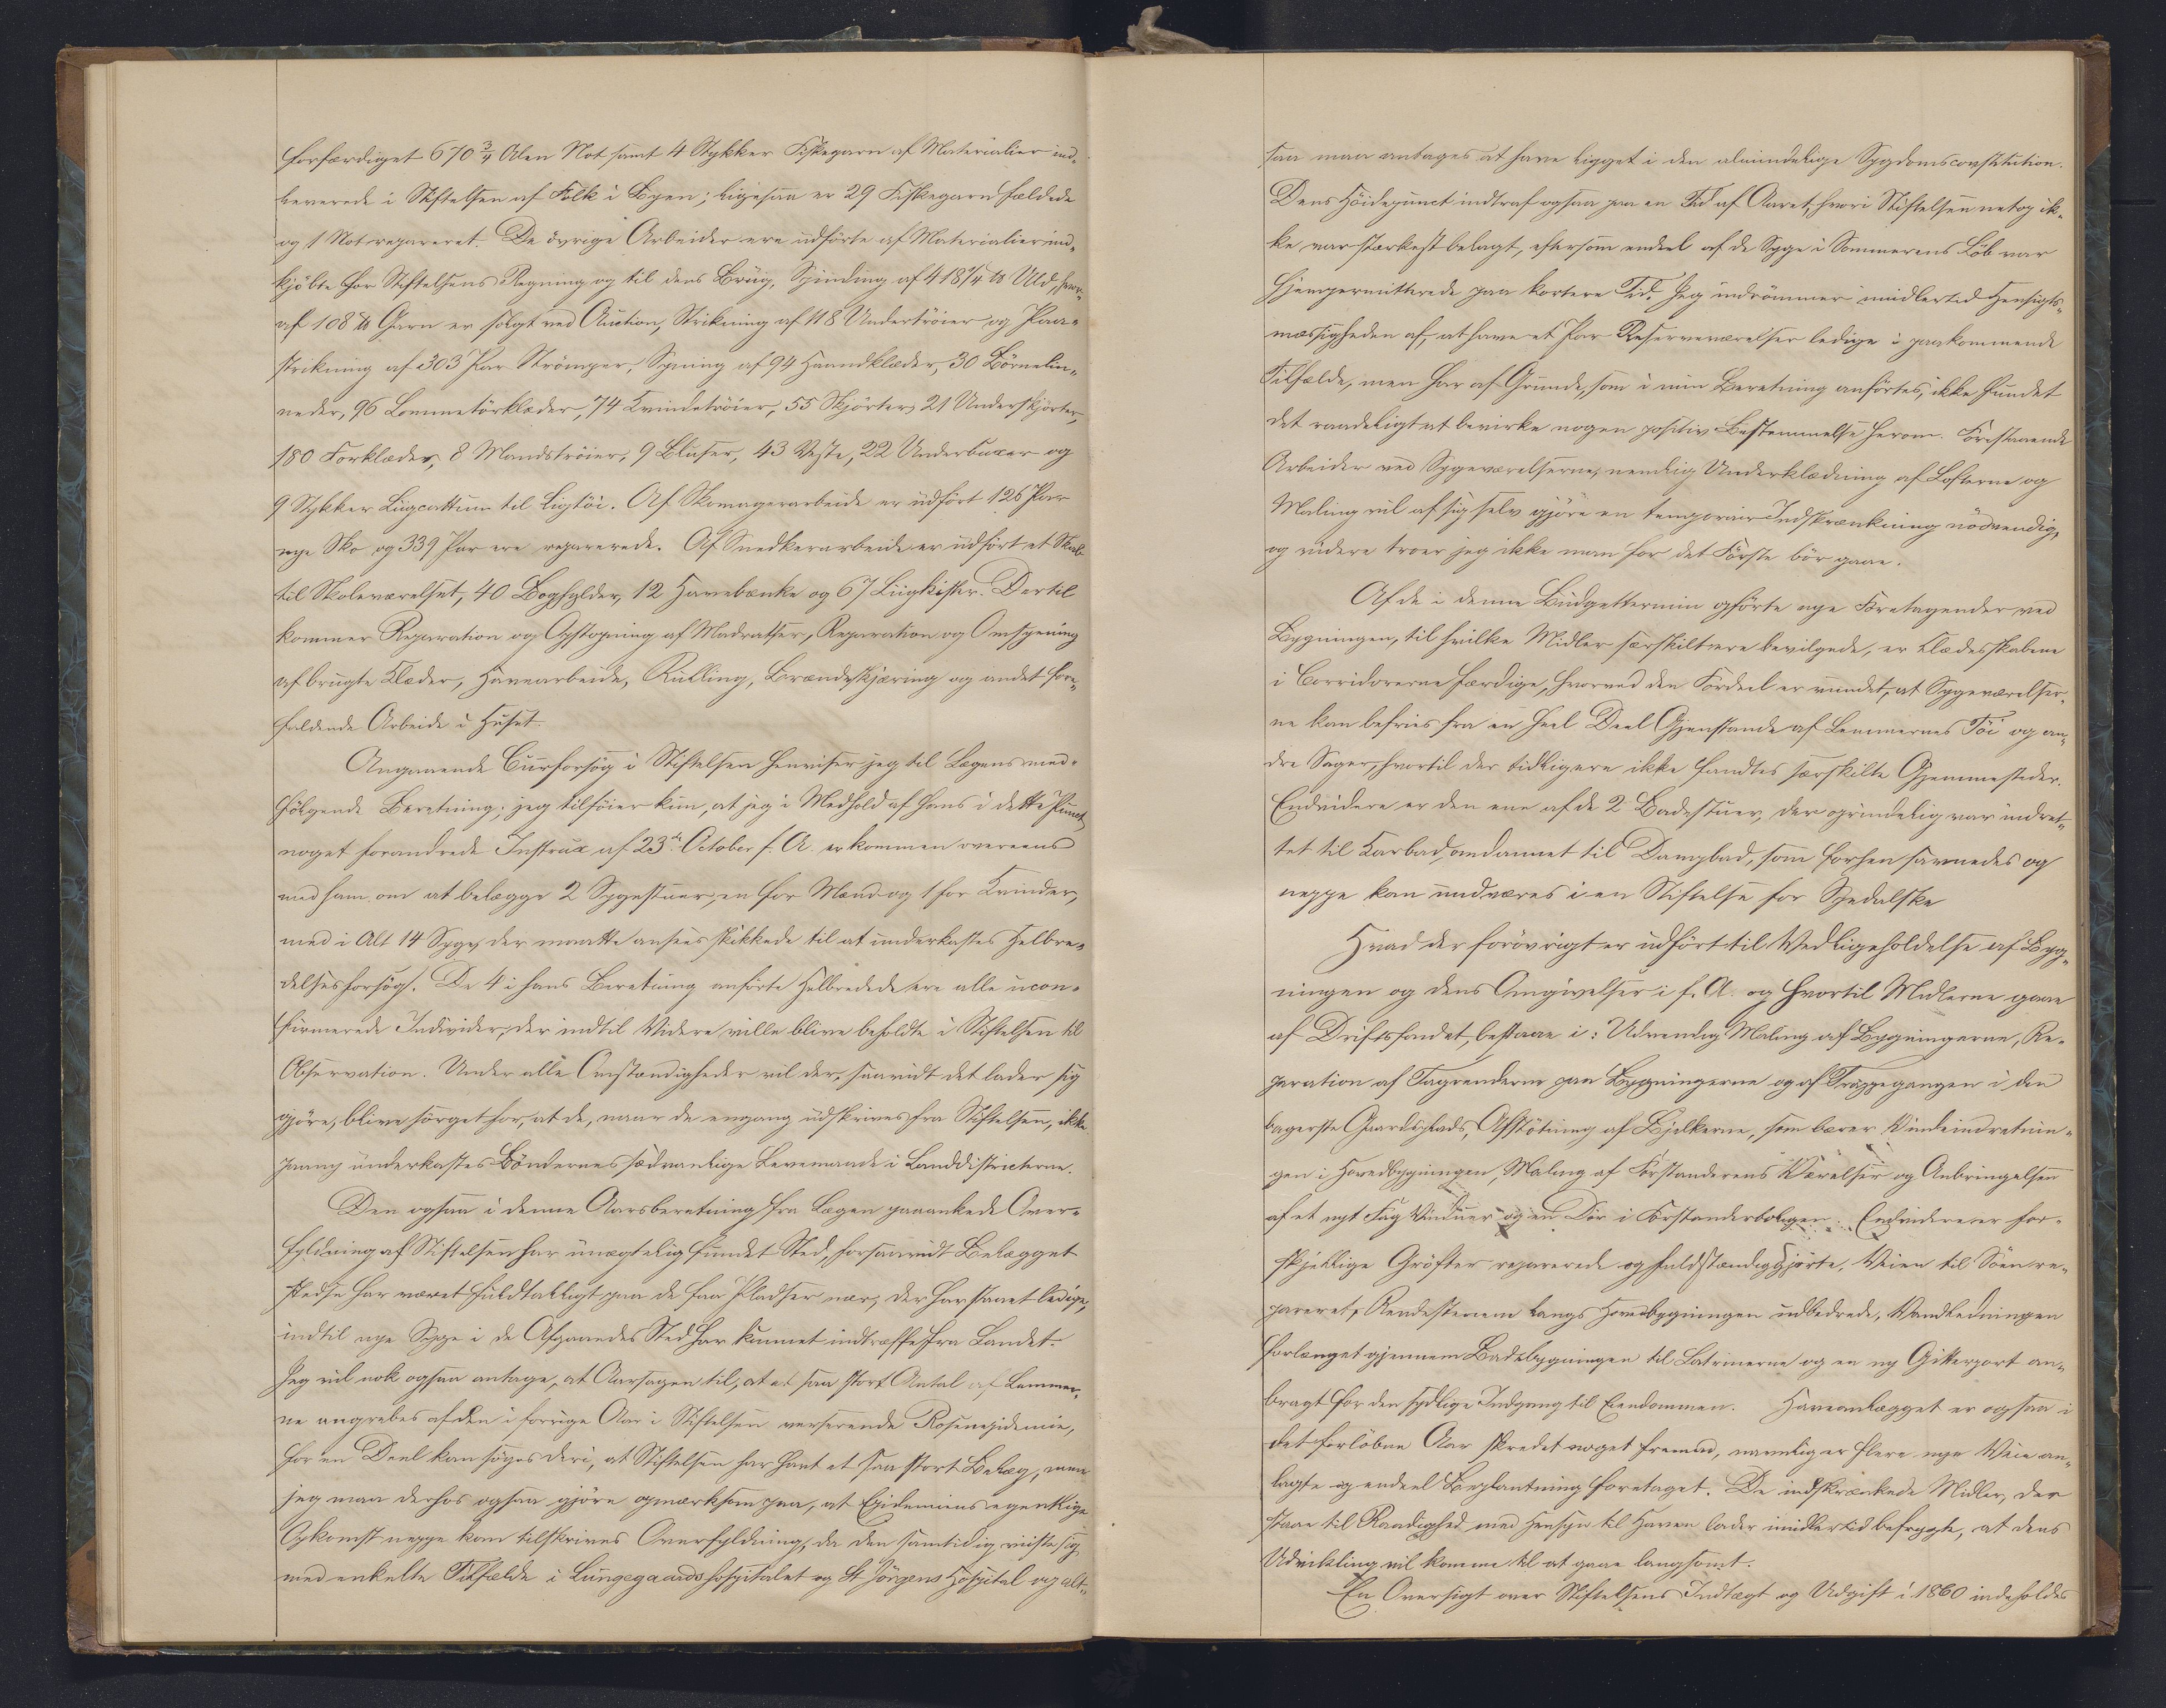 forfærdiget 670 3/4 Alen Not samt 4 Stykker Fiskegarn af Materialier ind-
leverede i Stiftelsen af Folk i Byen; ligesaa er 29 Fiskegarn fældede
og 1 Not repareret. De övrige Arbeider ere udförte af Materialier ind-
kjöbte for Stiftelsens Regning og til dens Brug, Spinding af 418 1/4 ℔ Uld, hvor-
af 108 ℔ Garn er solgt ved Auction, Strikning af 118 Undertröier og Paa-
strikning af 303 Par Strömper, Syning af 94 Haandklæder, 30 Börnelin-
neder, 96 Lommetörklæder, 74 Kvindetröier, 55 Skjörter, 21 Underskjörter,
180 Forklæder, 8 Mandströier, 9 Bluser, 43 Veste, 22 Underbuxer og
9 Stykker Liigcattun til Ligtöi. Af Skomagerarbeide er udfört 126 Par
nye Sko og 339 Par ere reparerede. Af Snedkerarbeide er udfört et Skab
til Skoleværelset, 40 Boghylder, 12 Havebænke og 67 Liigkister. Dertil
kommer Reparation og Opstopning af Madratser, Reparation og Omsyening
af brugte Klæder, Havearbeide, Rulling, Brændeskjæring og andet fore-
faldende Arbeide i Huset.
Angaaende Curforsög i Stiftelsen henviser jeg til Lægens med-
fölgende Beretning; jeg tilföier kun, at jeg i Medhold af hans i dette Punct
noget forandrede Instrux af 23de October f. A. er kommen overeens
med ham om at belægge 2 Sygestuer, en for Mænd og 1 for Kvinder,
med i Alt 14 Syge, der maatte ansees skikkede til at underkastes Helbre-
delsesforsög. De 4 i hans Beretning anförte Helbredede ere alle ucon-
firmerede Individer, der indtil Videre ville blive beholdte i Stiftelsen til
Observation. Under alle Omstændigheder vil der, saavidt det lader sig
gjöre, blive sörget for, at de, naar de engang udskrives fra Stiftelsen, ikke
paany underkastes Böndernes sædvanlige Levemaade i Landdistricterne.
Den ogsaa i denne Aarsberetning fra Lægen paaankede Over-
fyldning af Stiftelsen har unægtelig fundet Sted, forsaavidt Belægget
stedse har været fuldtalligt paa de faa Pladser nær, der har staaet ledige,
indtil nye Syge i de Afgaaedes Sted har kunnet indtræffe fra Landet.
Jeg vil nok ogsaa antage, at Aarsagen til, at et saa stort Antal af Lemmer-
ne angrebes af den i forrige Aar i Stiftelsen verserende Rosenepidemie,
for en Deel kan söges deri, at Stiftelsen har havt et saa stort Belæg, men
jeg maa derhos ogsaa gjöre opmærksom paa, at Epidemiens egentlige
Opkomst neppe kan tilskrives Overfyldning, da den samtidig viiste sig
med enkelte Tilfælde i Lungegaardshospitalet og St. Jörgens Hospital og alt-
saa maa antages at have ligget i den almindelige Sygdomsconstitution.
Dens Höidepunct indtraf ogsaa paa en Tid af Aaret, hvori Stiftelsen netop ik-
ke var stærkest belagt, eftersom endeel af de Syge i Sommerens Löb var
hjempermitterede paa kortere Tid. Jeg indrömmer imidlertid Hensigts-
mæssigheden af, at have et Par Reserveværelser ledige i paakommende
Tilfælde, men har af Grunde, som i min Beretning anförtes, ikke fundet
det raadeligt at bevirke nogen positiv Bestemmelse herom. Forestaaende
Arbeider ved Sygeværelserne, nemlig Underklædning af Lofterne og
Maling vil af sig selv gjöre en temporair Indskrænkning nödvendig,
og videre troer jeg ikke man for det Förste bör gaae.
Af de i denne Budgettermin opförte nye Foretagender ved
Bygningen, til hvilke Midler særskilt vare bevilgede, er Klædesskabene
i Corridorerne færdige, hvorved den Fordeel er vundet, at Sygeværelser-
ne kan befries fra en heel Deel Gjenstande af Lemmernes Töi og an-
dre Sager, hvortil der tidligere ikke fandtes særskilte Gjemmesteder.
Endvidere er den ene af de 2 Badestuer, der oprindelig var indret-
tet til Karbad, omdannet til Dampbad, som forhen savnedes og
neppe kan undværes i en Stiftelse for Spedalske
Hvad der forövrigt er udfört til Vedligeholdelse af Byg-
ningen og dens Omgivelser i f. A. og hvortil Midlerne gaae
af Driftsfondet, bestaae i: Udvendig Maling af Bygningerne, Re-
paration af Tagrenderne paa Bygningerne og af Trappegangen i den
bagerste Gaardsplads, Afstötning af Bjelkerne, som bærer Vindeindretnin-
gen i Hovedbygningen, Maling af Forstanderens Værelser og Anbringelsen
af et nyt Fag Vinduer og en Dör i Forstanderboligen. Endvidere er for-
skjellige Gröfter reparerede og fuldstændiggjörte, Veien til Söen re-
pareret, Rendestenene langs Hovedbygningen udbedrede, Vandledningen
forlænget gjennem Badebygningen til Latrinerne og en ny Gitterport an-
bragt for den sydlige Indgang til Eiendommen. Haveanlægget er ogsaa i
det forlöbne Aar skredet noget fremad, navnlig er flere nye Veie an-
lagte og endeel Beplantning foretaget. De indskrænkede Midler, der
staae til Raadighed med Hensyn til Haven lader imidlertid befrygte, at dens
Udvikling vil komme til at gaae langsomt.
En Oversigt over Stiftelsens Indtægt og Udgift i 1860 indeholdes